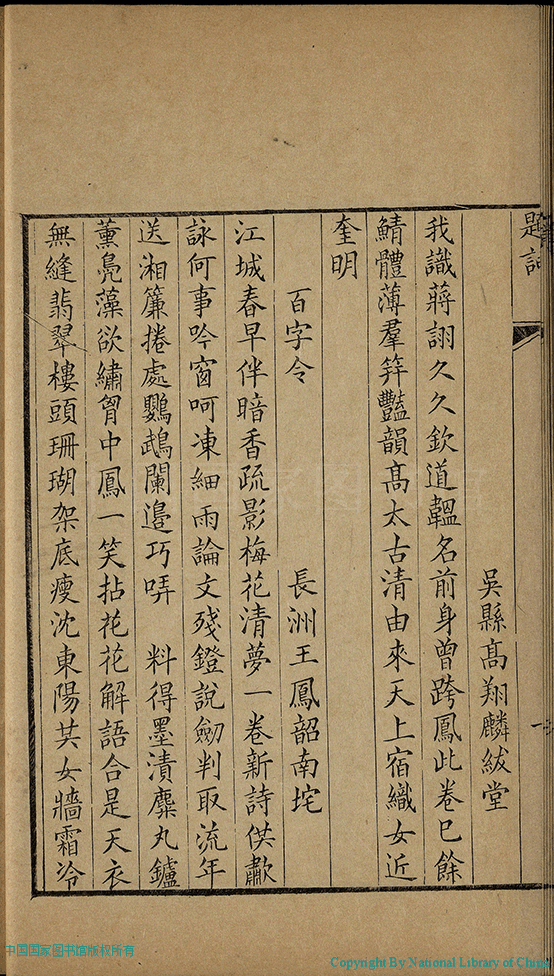 題詞
一
吳縣高翔麟紱堂
我識蔣詡久久欽道韞名前身曾跨鳳此卷已餘
鯖體薄羣笄豔韻高太古清由來天上宿織女近
奎明
百字令 長洲王鳳韶南垞
江城春早伴暗香疏影梅花清夢一卷新詩供歗
詠何事吟窗呵凍細雨論文殘鐙說劒判取流年
送湘簾捲處鸚鵡闌邊巧哢 料得墨漬麋丸鑪
薰鳧藻欲繡胷中鳳一笑拈花花解語合是天衣
無縫翡翠樓頭珊瑚架底瘦沈東陽共女牆霜冷
中国国家图书馆版权所有
Copyright By National Library of China